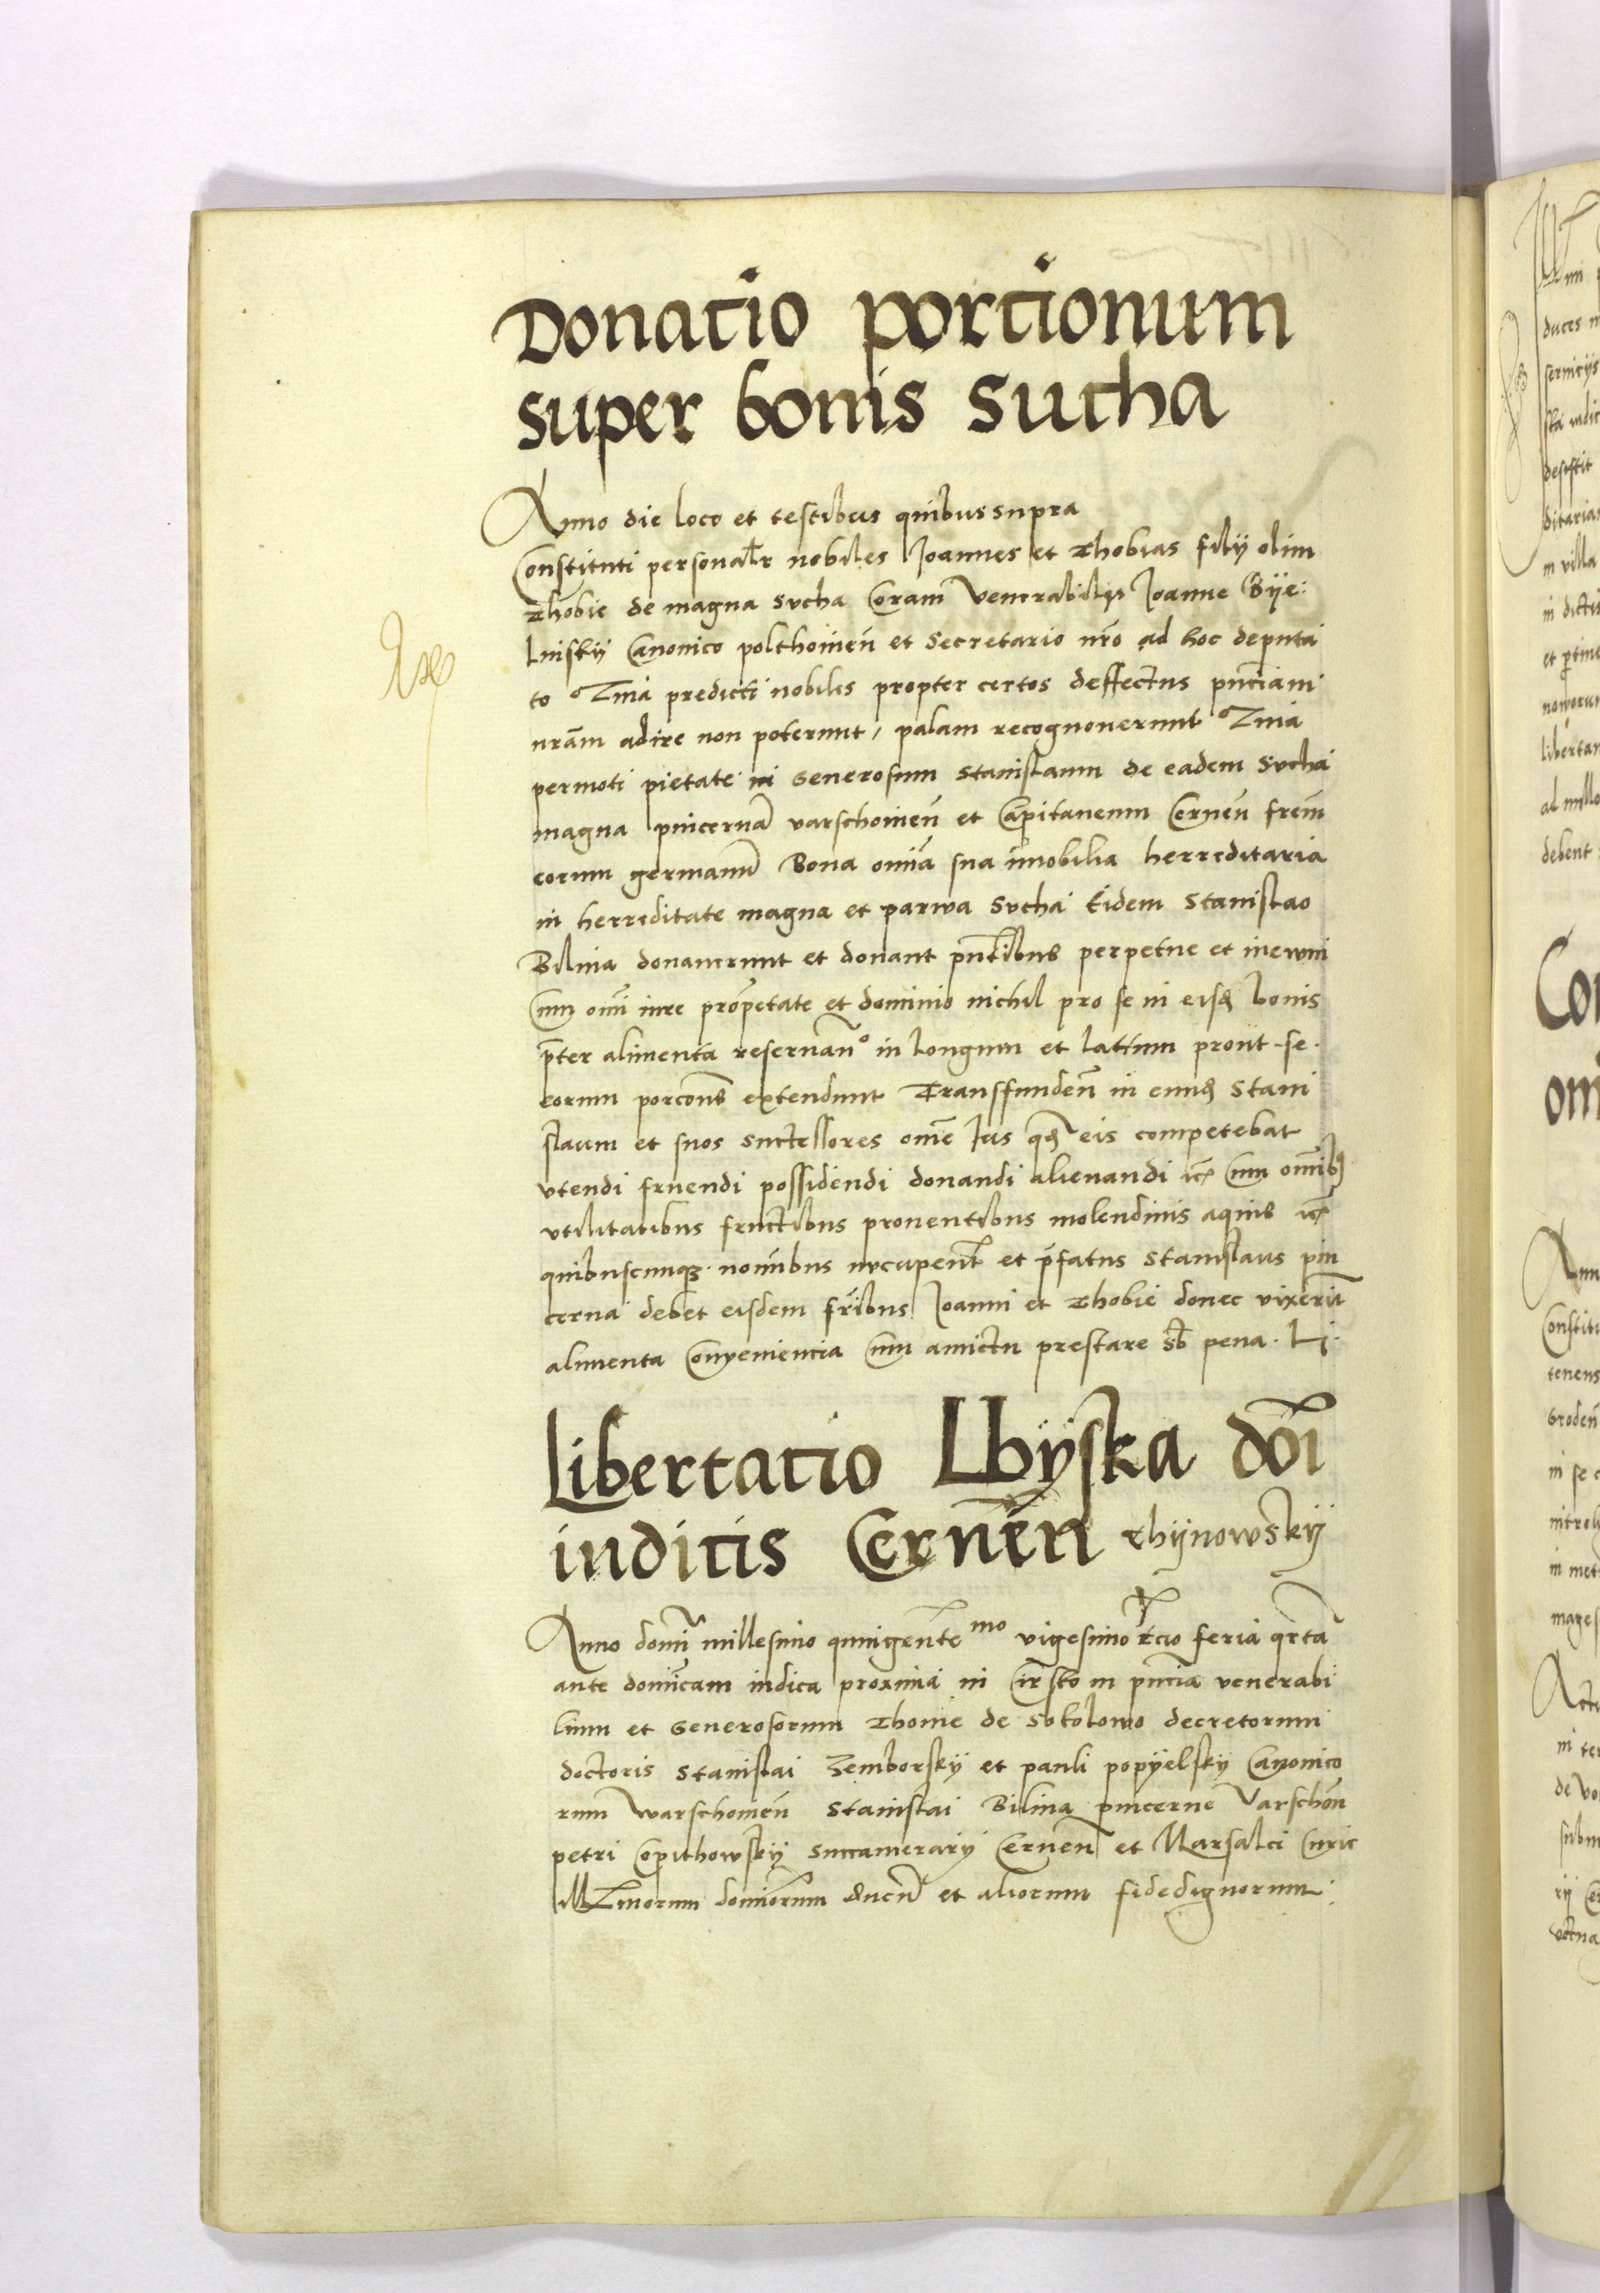 Donatio portionum
super bonis Sucha
Anno die loco et testibus quibus supra
Constituti personalr nobiles Joannes et Thobias filij olim
Thobie de magna Sucha Coram Venerabilis Joanne Bije:
lniskij Canonico polthouien et Secretario nro ad hoc deputa
to Quia predicti nobiles propter certos deffectus pnciam
nram adire non poterunt, palam recognouerunt Quia
permoti pietate in Generosum Stanislaum de eadem Sucha
magna pincerna varschouien et Capitaneum Cernen frem
eorum germanum Bona omia sua imobilia herreditaria
in herreditate magna et parwa Sucha Eidem Stanislao
Bilina donauerunt et donant pntibus perpetue et in ewm
Cum omi iure proprietate et dominio nichil pro se in eisdem bonis
preter alimenta reseruano in longum et latum prout se
eorum porcons extendunt Transfunden in eundem Stani
slaum et suos successores omne Jus quod eis competebat
vtendi fruendi possidendi donandi alienandi etc Cum omibus
vtilitatibus fructibus prouentibus molendinis aquis etc
quibuscumque nominbus nucupent et prefatus Stanislaus pin
cerna debet eisdem fribus Joanni et Thobie donec vixerint
alimenta Conuenientia Cum amictu prestare sb pena
Libertacio Lbÿska doi
iudicis Cernen Thijnowskij
Anno domi millesimo quingentemo vigesimo tercio feria qrta
ante domicam iudica proxima in Cirsko in pncia venerabi
lium et Generosorum Thome de Sokolowo decretorum
doctoris Stanislai Zemborskij et pauli popÿelskij Canonico
rum warschouien Stanislai Bilina pincerne Varschon
petri Copithowskij Succamerarij Cernen et Marsalci Curie
Illmorum dominorum Ducum et aliorum fidedignorum